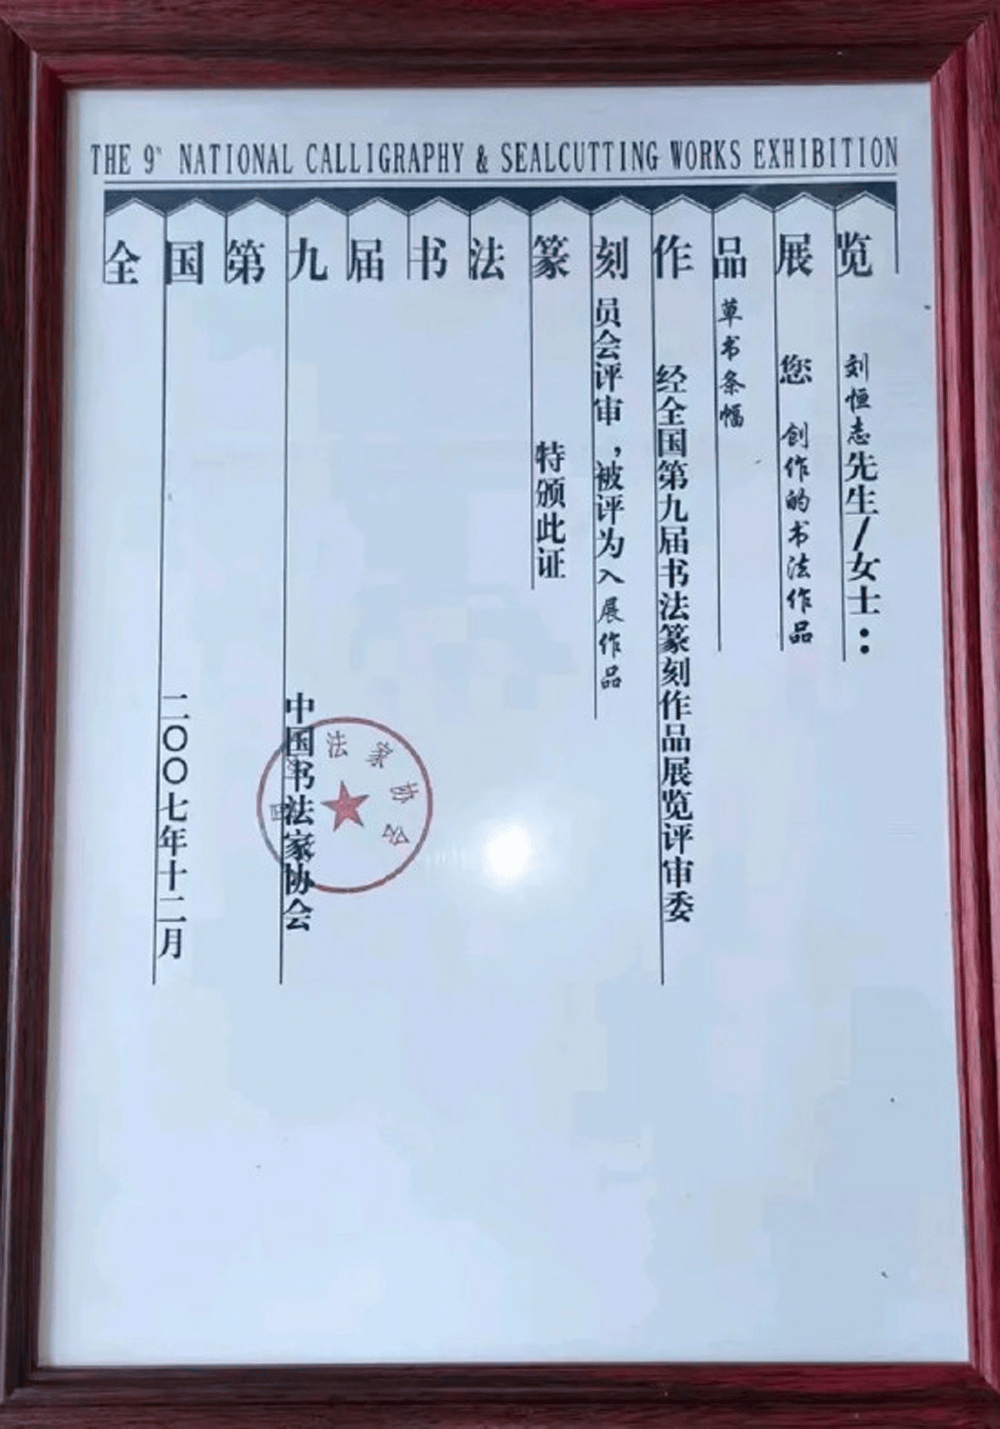 THE 9th NATIONAL CALLIGRAPHY & SEALCUTTING WORKS EXHIBITION
全国第九届书法篆刻作品展览
刘恒志先生/女士：
您创作的书法作品
草书条幅
经全国第九届书法篆刻作品展览评审委
员会评审，被评为入展作品
特颁此证
中国书法家协会
二〇〇七年十二月
国 法家协会